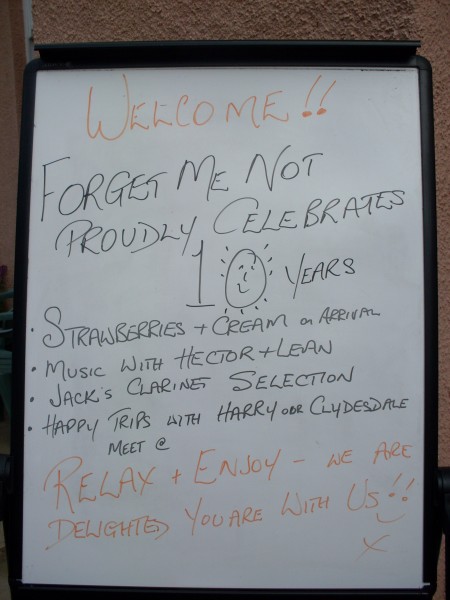 WELCOME!!
FORGET ME NOT
PROUDLY CELEBRATES
10 YEARS
· STRAWBERRIES + CREAM on ARRIVAL
· MUSIC WITH HECTOR + LEAN
· JACK'S CLARINET SELECTION
· HAPPY TRIPS WITH HARRY OUR CLYDESDALE
MEET @
RELAX + ENJOY - WE ARE
DELIGHTED YOU ARE WITH US!!
X